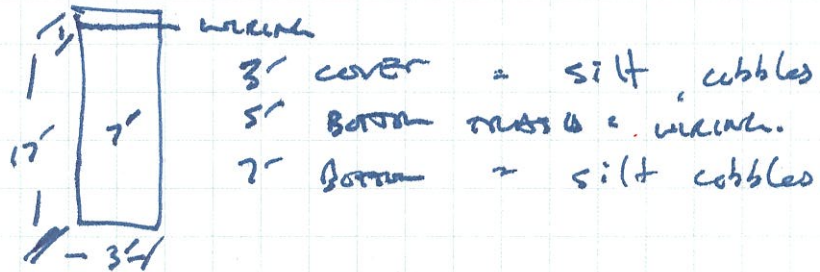 1' WIRING
3' COVER = silt, cobbles
5' BOTTOM TRASH = WIRING.
17' 7'
7' BOTTOM = silt cobbles
3'